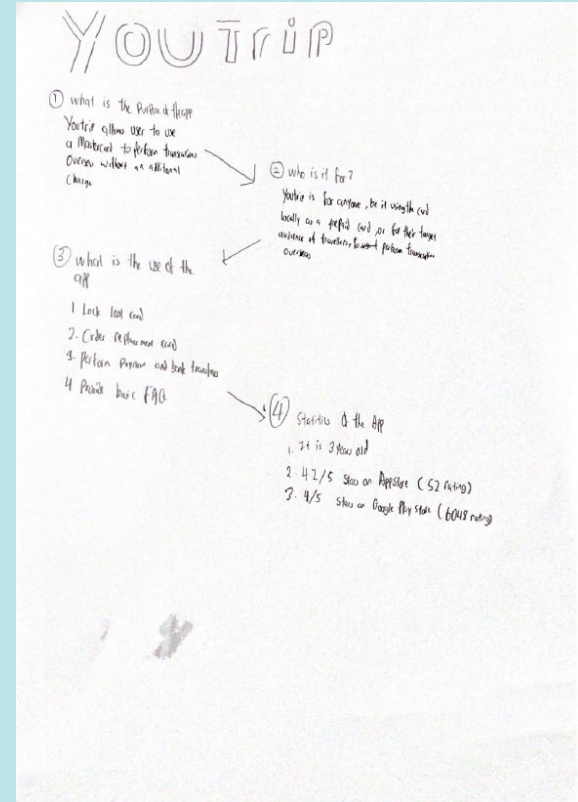 YOUTrip
① what is the purpose of the app
Youtrip allows user to use
a Mastercard to perform transactions
Overseas without an additional
Charge
② who is it for?
Youtrip is for anyone, be it using the card
locally as a prepaid card, or for their target
audience of travellers, to perform transaction
overseas
③ what is the use of the
app
1 Lock lost card
2. Order replacement card
3. Perform Paynow and bank transfers
4 Provide basic FAQ
④ Statistics of the App
1. It is 3 years old
2. 4.2/5 Stars on AppStore (52 rating)
3. 4/5 Stars on Google Play Store (6048 rating)